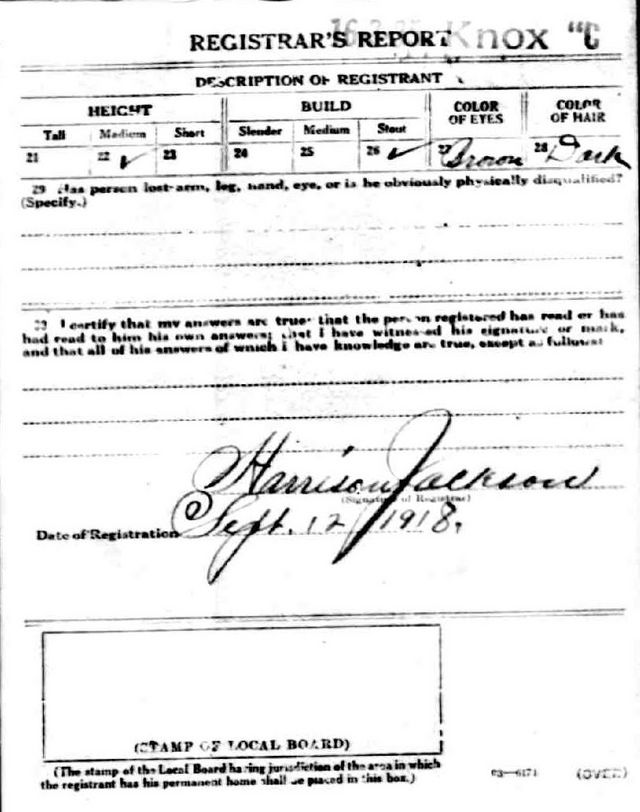 REGISTRAR'S REPORT Knox "C
DESCRIPTION OF REGISTRANT
HEIGHT BUILD COLOR OF EYES COLOR OF HAIR
Tall Medium Short Slender Medium Stout
21 22 ✓ 23 24 25 26 ✓ 27 Brown 28 Dark
29 Has person lost arm, leg, hand, eye, or is he obviously physically disqualified?
(Specify.)
30 I certify that my answers are true; that the person registered has read or has
had read to him his own answers; that I have witnessed his signature or mark,
and that all of his answers of which I have knowledge are true, except as follows:
Harrison Jackson
(Signature of Registrar)
Date of Registration Sept. 12, 1918.
(STAMP OF LOCAL BOARD)
(The stamp of the Local Board having jurisdiction of the area in which
the registrant has his permanent home shall be placed in this box.)
03—6171 (OVER)